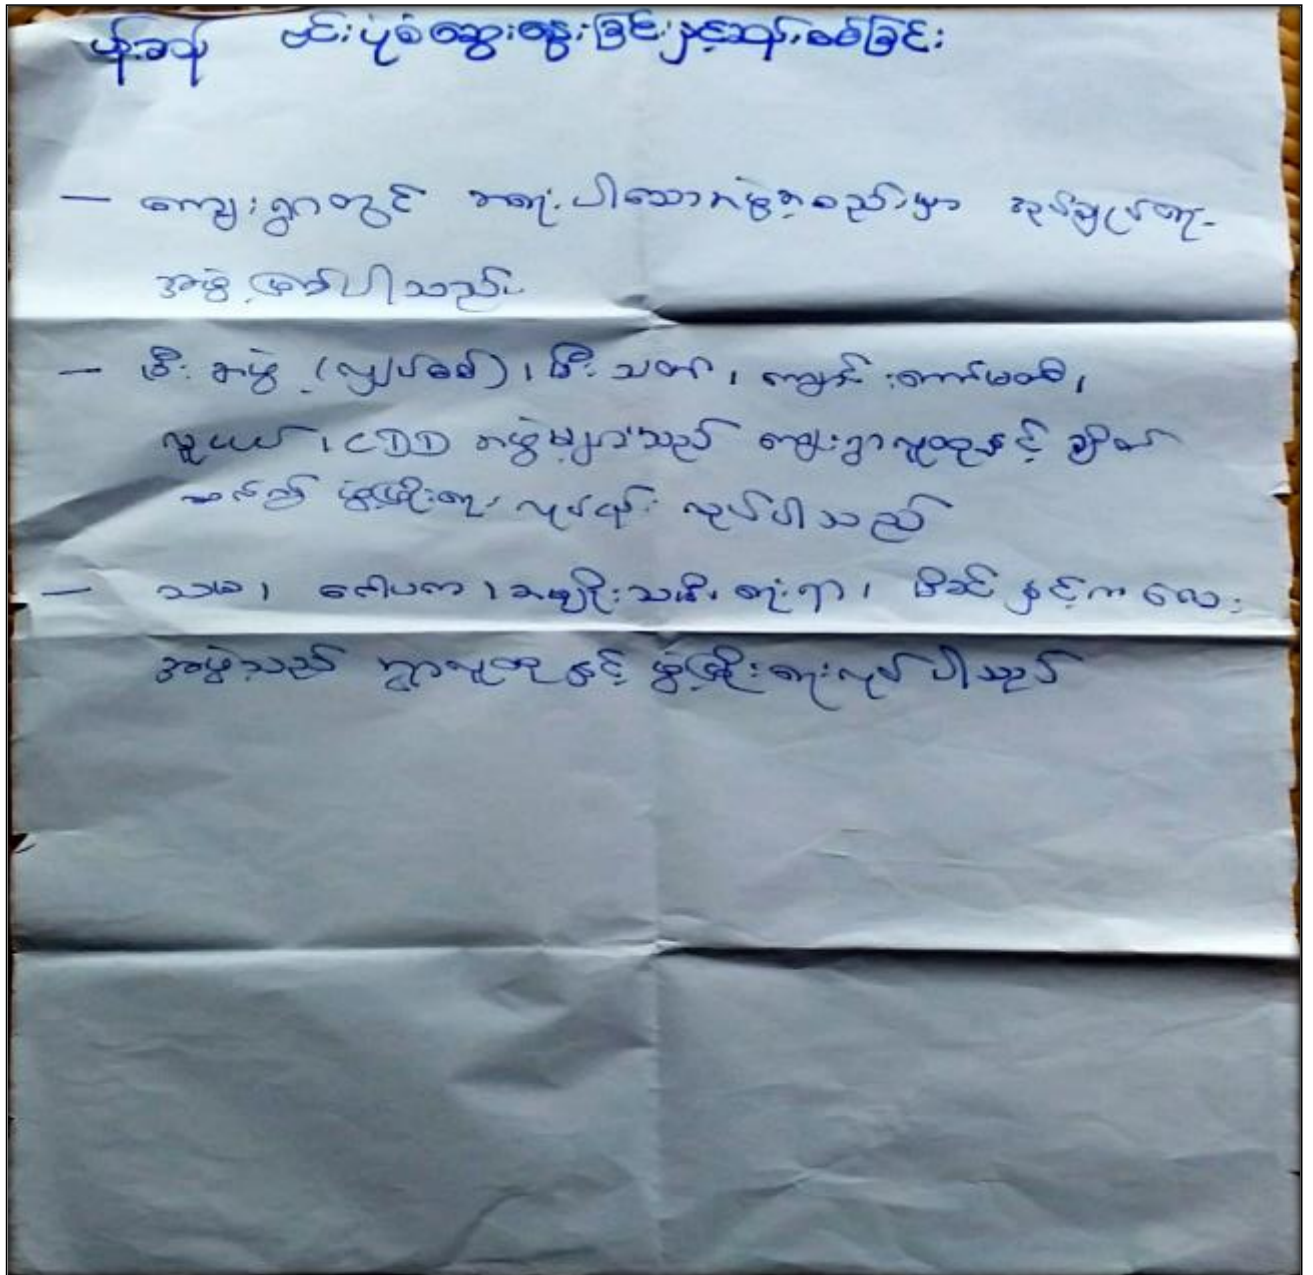 ပန်းခန် ဗင်းပုံစံဆွေးနွေးခြင်းနှင့်ဆန်းစစ်ခြင်း
— ကျေးရွာတွင် အရေးပါသောအဖွဲ့အစည်းမှာ အုပ်ချုပ်ရေး
အဖွဲ့ဖြစ်ပါသည်။
— မီးအဖွဲ့ (လျှပ်စစ်)၊ မီးသတ်၊ ကျောင်းကော်မတီ၊
လူငယ်၊ CDD အဖွဲ့များသည် ကျေးရွာလူထုနှင့် ချိတ်
ဆက်၍ ဖွံ့ဖြိုးရေးလုပ်ငန်း လုပ်ပါသည်
— သမ၊ ဂေါပက၊ အမျိုးသမီးရေးရာ၊ မိခင်နှင့်ကလေး
အဖွဲ့သည် ရွာလူထုနှင့် ဖွံ့ဖြိုးရေးလုပ်ပါသည်